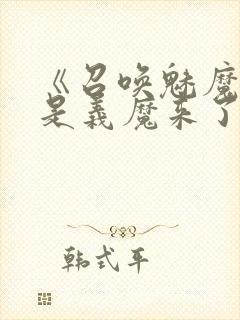 《召唤魅魔
是义魔来了
韩式平